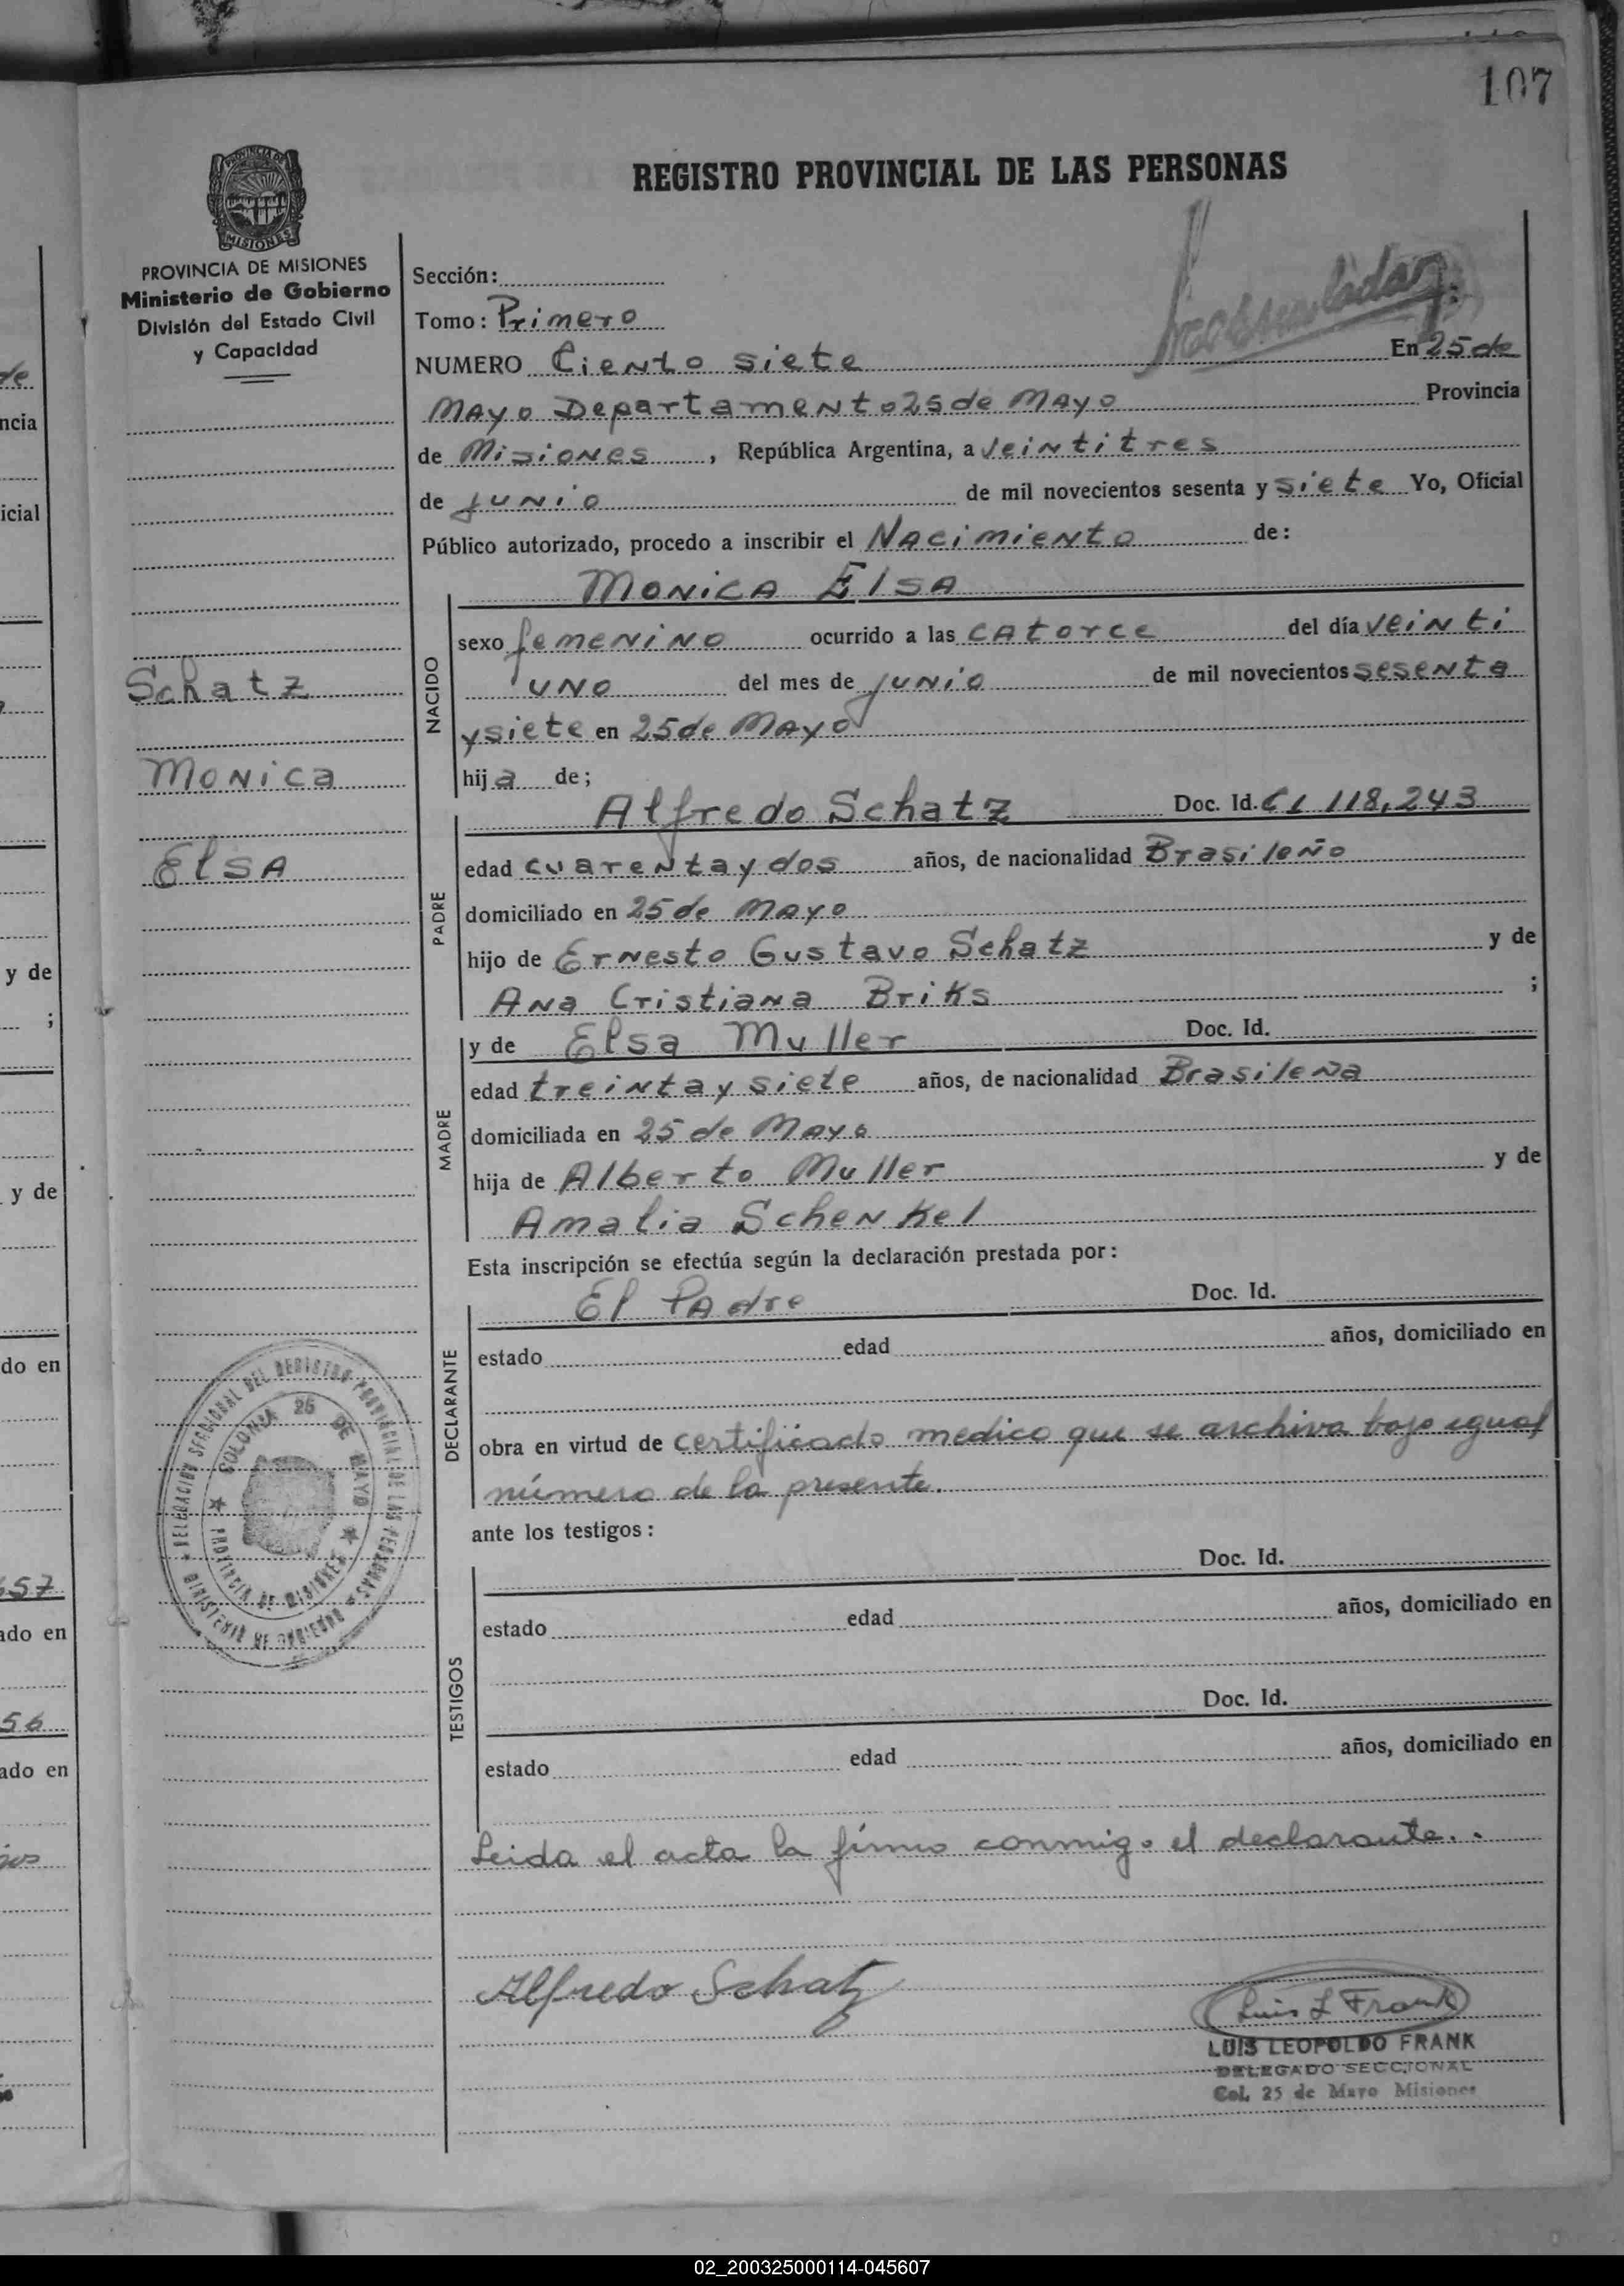 107
REGISTRO PROVINCIAL DE LAS PERSONAS
PROVINCIA DE MISIONES
Ministerio de Gobierno
División del Estado Civil
y Capacidad
Schatz
Monica
Elsa
Sección:
Tomo: Primero
NUMERO Ciento siete En 25 de
Mayo Departamento 25 de Mayo Provincia
de Misiones, República Argentina, a veintitres
de junio de mil novecientos sesenta y siete Yo, Oficial
Público autorizado, procedo a inscribir el Nacimiento de:
NACIDO
Monica Elsa
sexo femenino ocurrido a las catorce del día veinti
uno del mes de junio de mil novecientos sesenta
y siete en 25 de Mayo
hija de;
PADRE
Alfredo Schatz Doc. Id. CI 118,243
edad cuarenta y dos años, de nacionalidad Brasileño
domiciliado en 25 de Mayo
hijo de Ernesto Gustavo Schatz y de
Ana Cristiana Briks ;
MADRE
y de Elsa Muller Doc. Id.
edad treinta y siete años, de nacionalidad Brasileña
domiciliada en 25 de Mayo
hija de Alberto Muller y de
Amalia Schenkel
Esta inscripción se efectúa según la declaración prestada por:
DECLARANTE
El Padre Doc. Id.
estado edad años, domiciliado en
obra en virtud de certificado medico que se archiva bajo igual
número de la presente.
ante los testigos:
TESTIGOS
Doc. Id.
estado edad años, domiciliado en
Doc. Id.
estado edad años, domiciliado en
Leida el acta la firma conmigo el declarante..
Alfredo Schatz
Luis L Frank
LUIS LEOPOLDO FRANK
DELEGADO SECCIONAL
Col. 25 de Mayo Misiones
DELEGACION SECCIONAL DEL REGISTRO PROVINCIAL DE LAS PERSONAS
MINISTERIO DE GOBIERNO
COLONIA 25 DE MAYO
PROVINCIA DE MISIONES
de
ncia
icial
y de
;
y de
do en
657
ado en
56
ado en
02_200325000114-045607